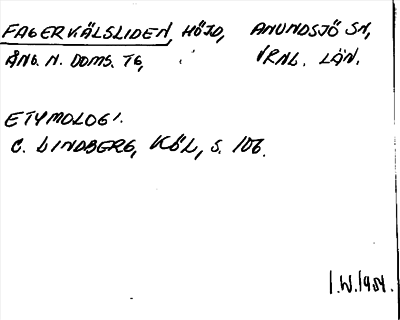 FAGERKÄLSLIDEN, HÖJD, ANUNDSJÖ SN,
ÅNG. N. DOMS. TG, VRNL. LÄN.
ETYMOLOGI.
C. LINDBERG, KÖL, S. 106.
I.W. 1984.